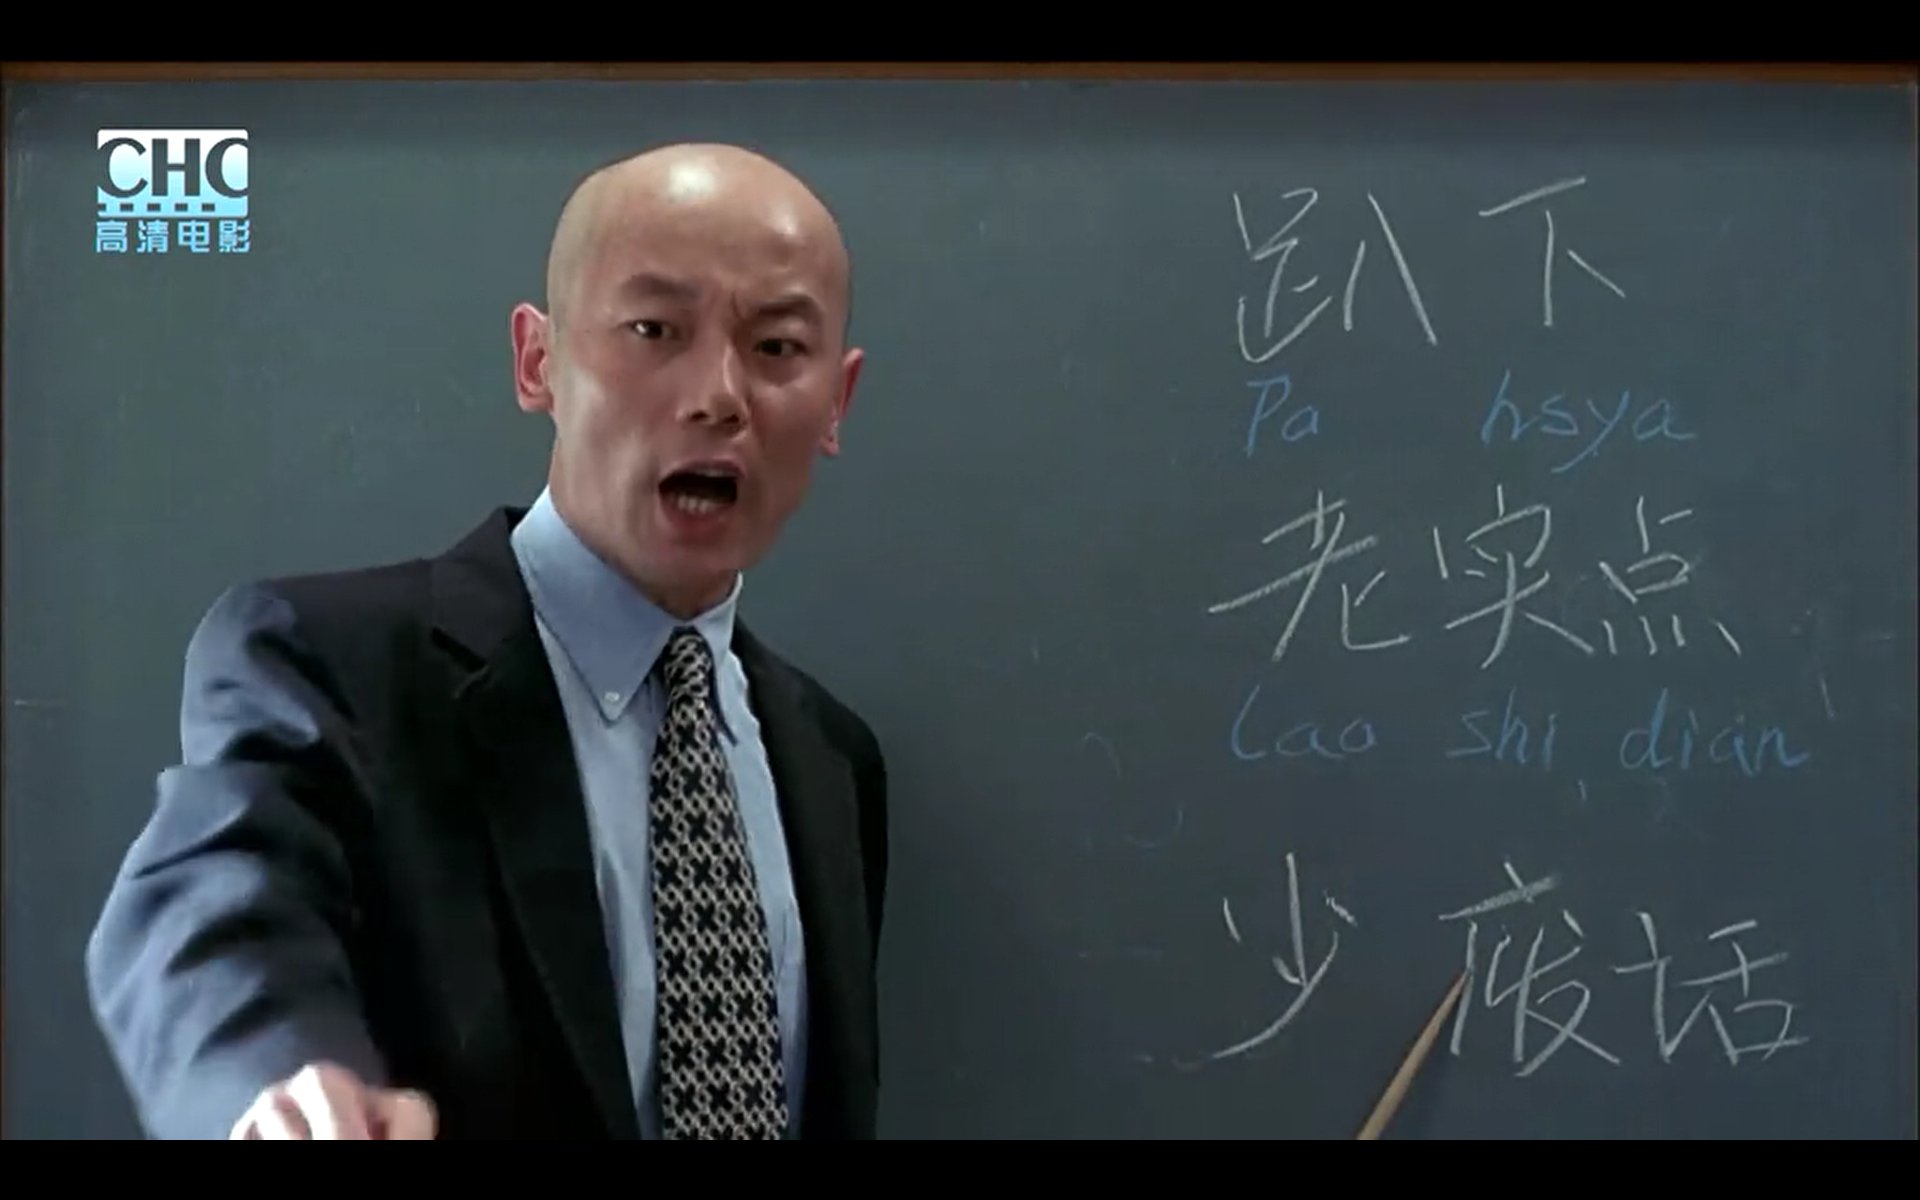 CHC
高清电影
趴下
Pa hsya
老实点
Lao shi dian
少废话